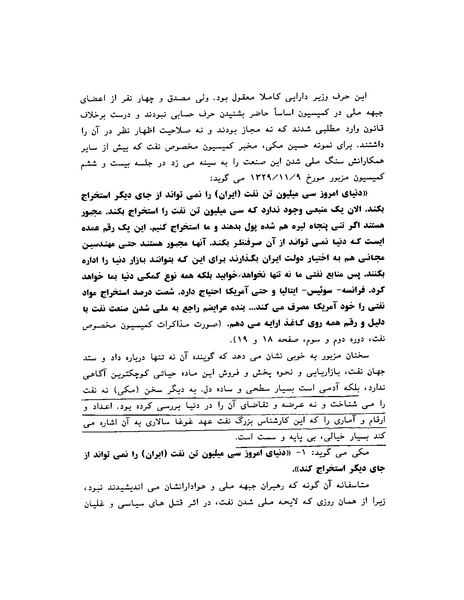 این حرف وزیر دارایی کاملا معقول بود. ولی مصدق و چهار نفر از اعضای
جبهه ملی در کمیسیون اساساً حاضر بشنیدن حرف حسابی نبودند و درست برخلاف
قانون وارد مطلبی شدند که نه مجاز بودند و نه صلاحیت اظهار نظر در آن را
داشتند. برای نمونه حسین مکی، مخبر کمیسیون مخصوص نفت که بیش از سایر
همکارانش سنگ ملی شدن این صنعت را به سینه می زد در جلسه بیست و ششم
کمیسیون مزبور مورخ ۱۳۲۹/۱۱/۹ می گوید:
«دنیای امروز سی میلیون تن نفت (ایران) را نمی تواند از جای دیگر استخراج
بکند. الان یک منبعی وجود ندارد که سی میلیون تن نفت را استخراج بکند. مجبور
هستند اگر تنی پنجاه لیره هم شده پول بدهند و ما استخراج کنیم. این یک رقم عمده
ایست که دنیا نمی تواند از آن صرفنظر بکند. آنها مجبور هستند حتی مهندسین
مجانی هم به اختیار دولت ایران بگذارند برای این که بتوانند بازار دنیا را اداره
بکنند. پس منابع نفتی ما نه تنها نخواهد/خوابید بلکه همه نوع کمکی دنیا بما خواهد
کرد. فرانسه- سوئیس- ایتالیا و حتی آمریکا احتیاج دارد. شصت درصد استخراج مواد
نفتی را خود آمریکا مصرف می کند... بنده عرایضم راجع به ملی شدن صنعت نفت با
دلیل و رقم همه روی کاغذ ارایه می دهم. (صورت مذاکرات کمیسیون مخصوص
نفت، دوره دوم و سوم، صفحه ۱۸ و ۱۹).
سخنان مزبور به خوبی نشان می دهد که گوینده آن نه تنها درباره داد و ستد
جهان نفت، بازاریابی و نحوه پخش و فروش این ماده حیاتی کوچکترین آگاهی
ندارد، بلکه آدمی است بسیار سطحی و ساده دل. به دیگر سخن (مکی) نه نفت
را می شناخت و نه عرضه و تقاضای آن را در دنیا بررسی کرده بود. اعداد و
ارقام و آماری را که این کارشناس بزرگ نفت عهد غوغا سالاری به آن اشاره می
کند بسیار خیالی، بی پایه و سست است.
مکی می گوید: ۱- «دنیای امروز سی میلیون تن نفت (ایران) را نمی تواند از
جای دیگر استخراج کند».
متاسفانه آن گونه که رهبران جبهه ملی و هوادارانشان می اندیشیدند نبود،
زیرا از همان روزی که لایحه ملی شدن نفت، در اثر قتل های سیاسی و غلیان